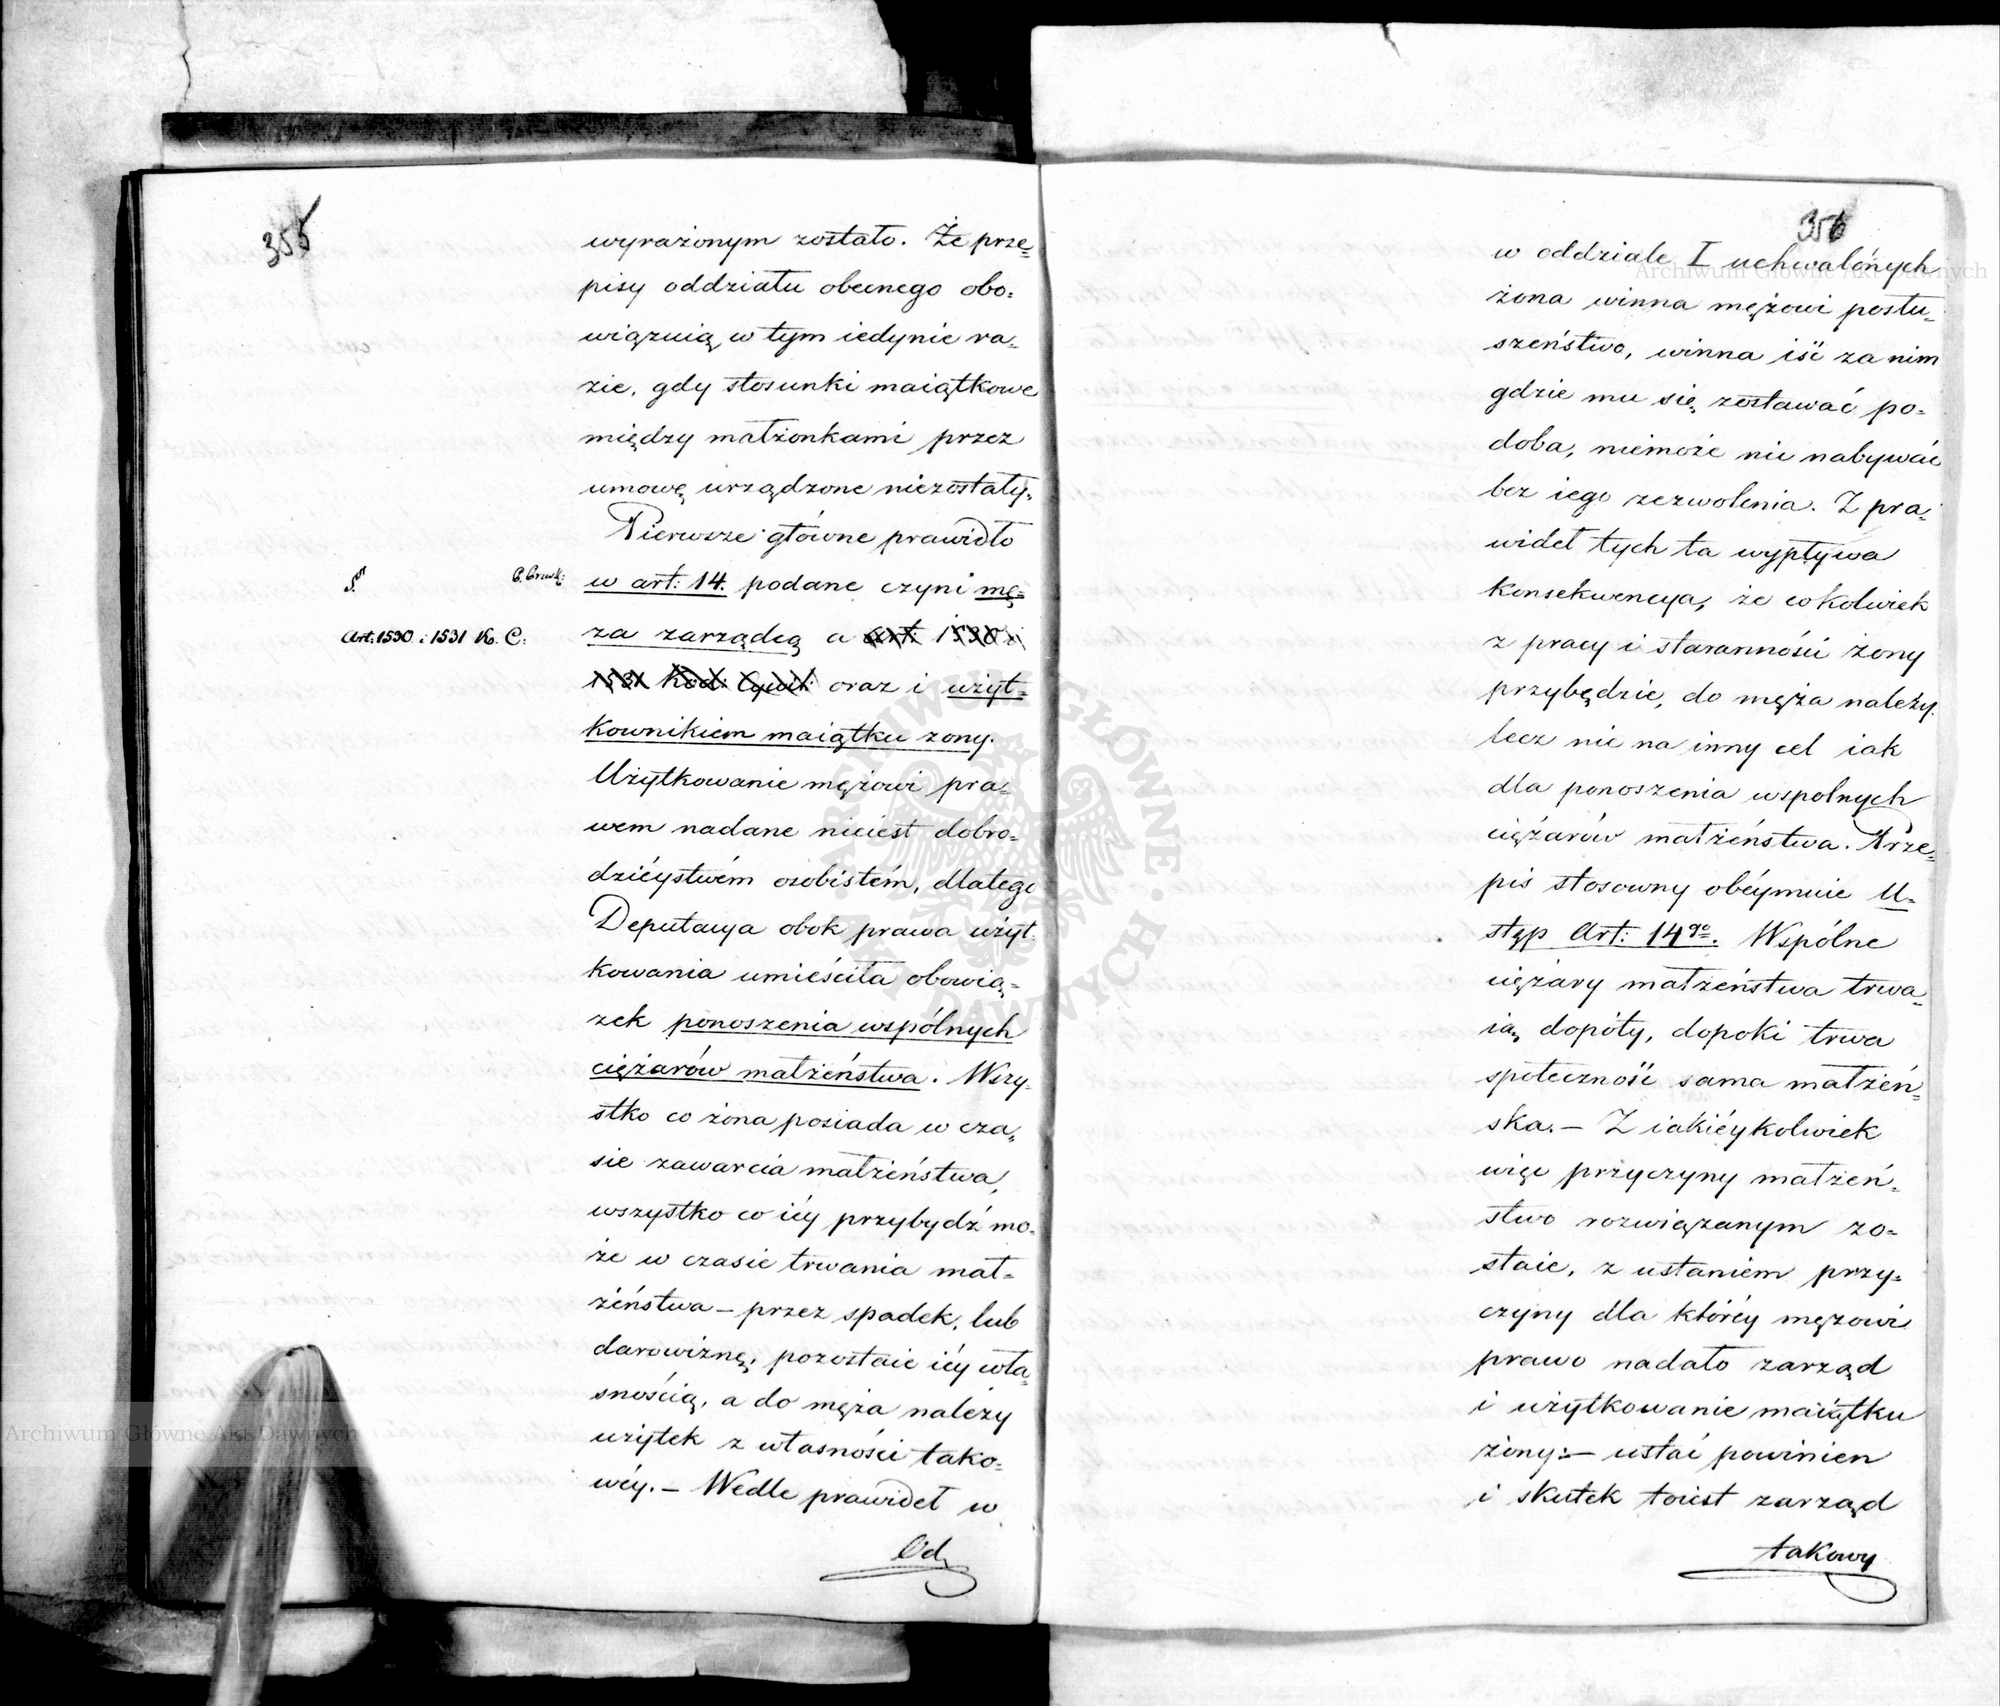 355
wyrażonym zostało. Że prze=
pisy oddziału obecnego obo=
wiązuią w tym iedynie ra=
zie, gdy stosunki maiątkowe
między małżonkami przez
umowę urządzone niezostały.
Pierwsze główne prawidło
w art: 14. podane czyni mę=
Art: 1530 i 1531 K. C:
za zarządcą a art: 1530 i
1531 Kod: Cywil: oraz i użyt=
kownikiem maiątku żony.
Użytkowanie mężowi pra=
wem nadane nieiest dobro=
dziéystwém osobistém, dlatego
Deputacya obok prawa użyt=
kowania umieściła obowią=
zek ponoszenia wspólnych
ciężarów małżeństwa. Wszy=
stko co żona posiada w cza=
sie zawarcia małżeństwa,
wszystko co iéy przybydź mo=
że w czasie trwania mał=
żeństwa – przez spadek, lub
darowiznę, pozostaie iéy wła=
snością, a do męża należy
użytek z własności tako=
wéy. – Wedle prawideł w
Od
356
w oddziale I uchwalónych
żona winna mężowi posłu=
szeństwo, winna iść za nim
gdzie mu się zostawać po=
doba, niemoże nic nabywać
bez iego zezwolenia. Z pra=
wideł tych ta wypływa
konsekwencya, że cokolwiek
z pracy i staranności żony
przybędzie, do męża należy.
lecz nie na inny cel iak
dla ponoszenia wspolnych
ciężarów małżeństwa. Prze=
pis stosowny obéymuie U=
stęp Art: 14go. Wspólne
ciężary małżeństwa trwa=
ią dopóty, dopoki trwa
społeczność sama małżeń=
ska. – Z iakiéykolwiek
więc przyczyny małżeń=
stwo rozwiązanym zo=
staie, z ustaniem przy=
czyny dla któréy mężowi
prawo nadało zarząd
i użytkowanie maiątku
żony: – ustać powinien
i skutek toiest zarząd
takowy
Archiwum Główne Akt Dawnych
Archiwum Główne Akt Dawnych
ARCHIWUM GŁÓWNE AKT DAWNYCH